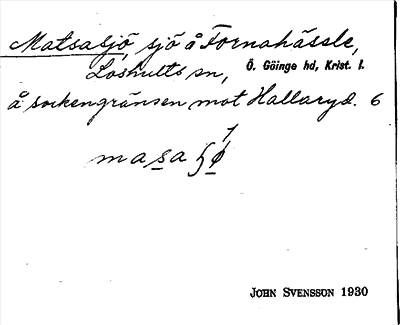 Matsasjö, sjö å Fornahässle,
Loshults sn, Ö. Göinge hd, Krist. l.
å sockengränsen mot Hallaryd. 6
John Svensson 1930